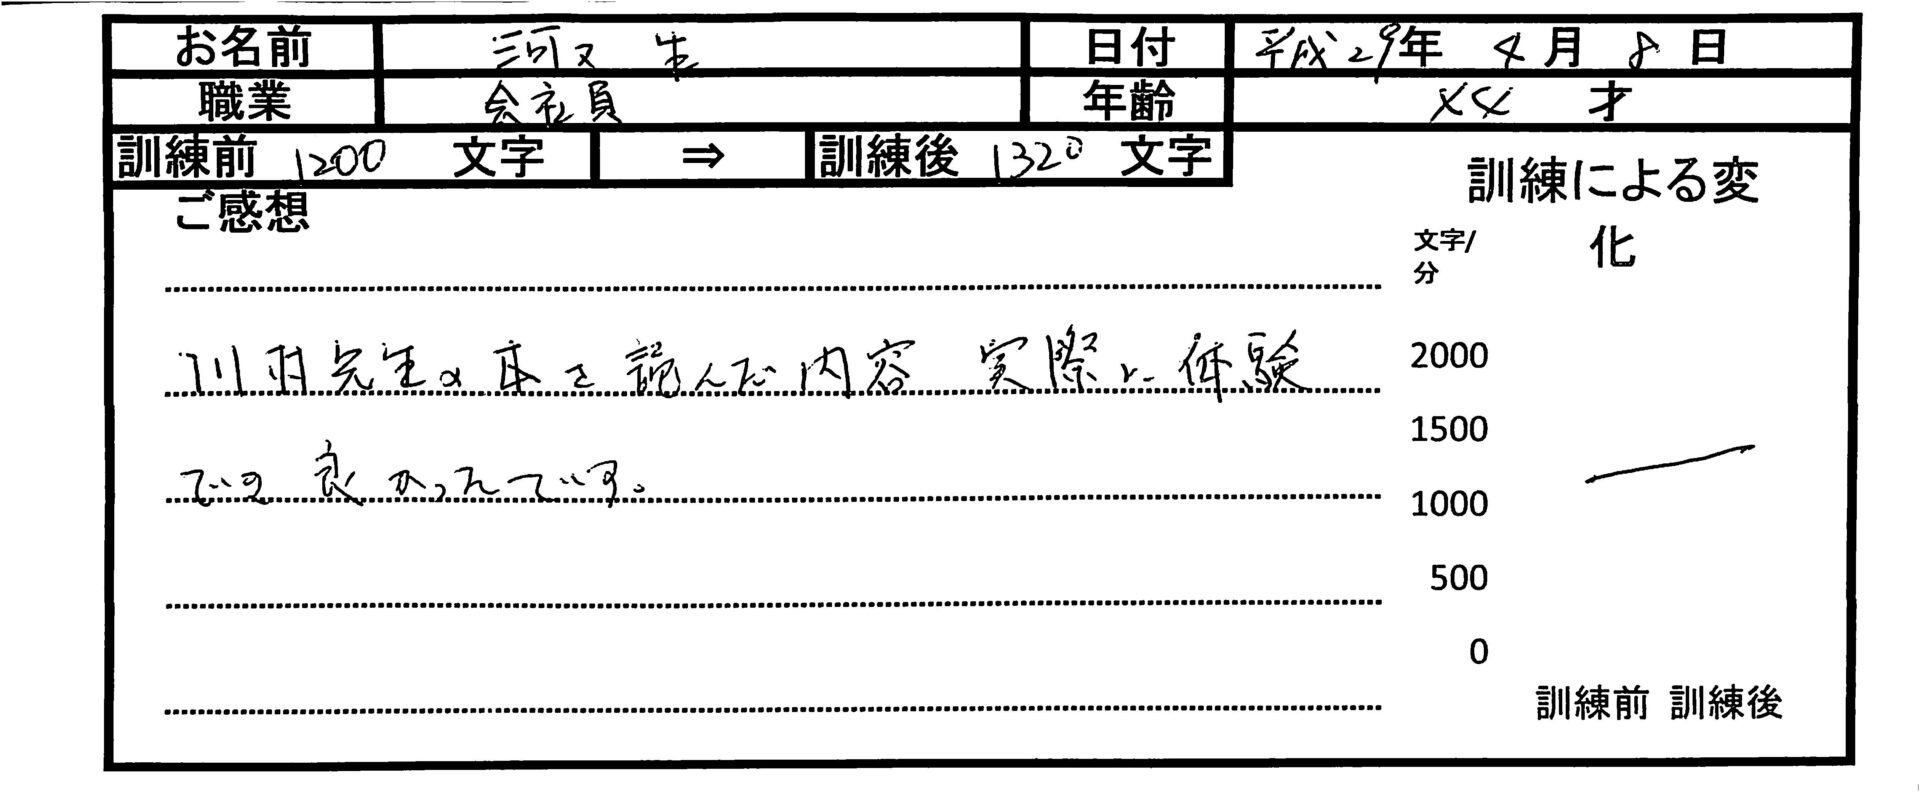 お名前 河又 生 日付 平成29年 4月 8日
職業 会社員 年齢 44 才
訓練前 1200 文字 ⇒ 訓練後 1320 文字
ご感想
訓練による変
化
文字/
分
川村先生の本を読んだ内容 実際に体験
でき良かったです。
2000
1500
1000
500
0
訓練前 訓練後